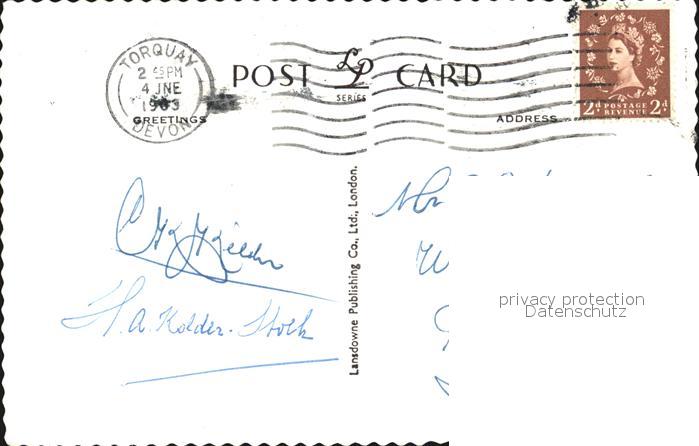 TORQUAY
2 45 PM
4 JNE
1963
DEVON
POST LP CARD
SERIES
GREETINGS
ADDRESS
2d POSTAGE 2d
REVENUE
Lansdowne Publishing Co., Ltd., London.
H. A. Kolder-Stolk
privacy protection
Datenschutz